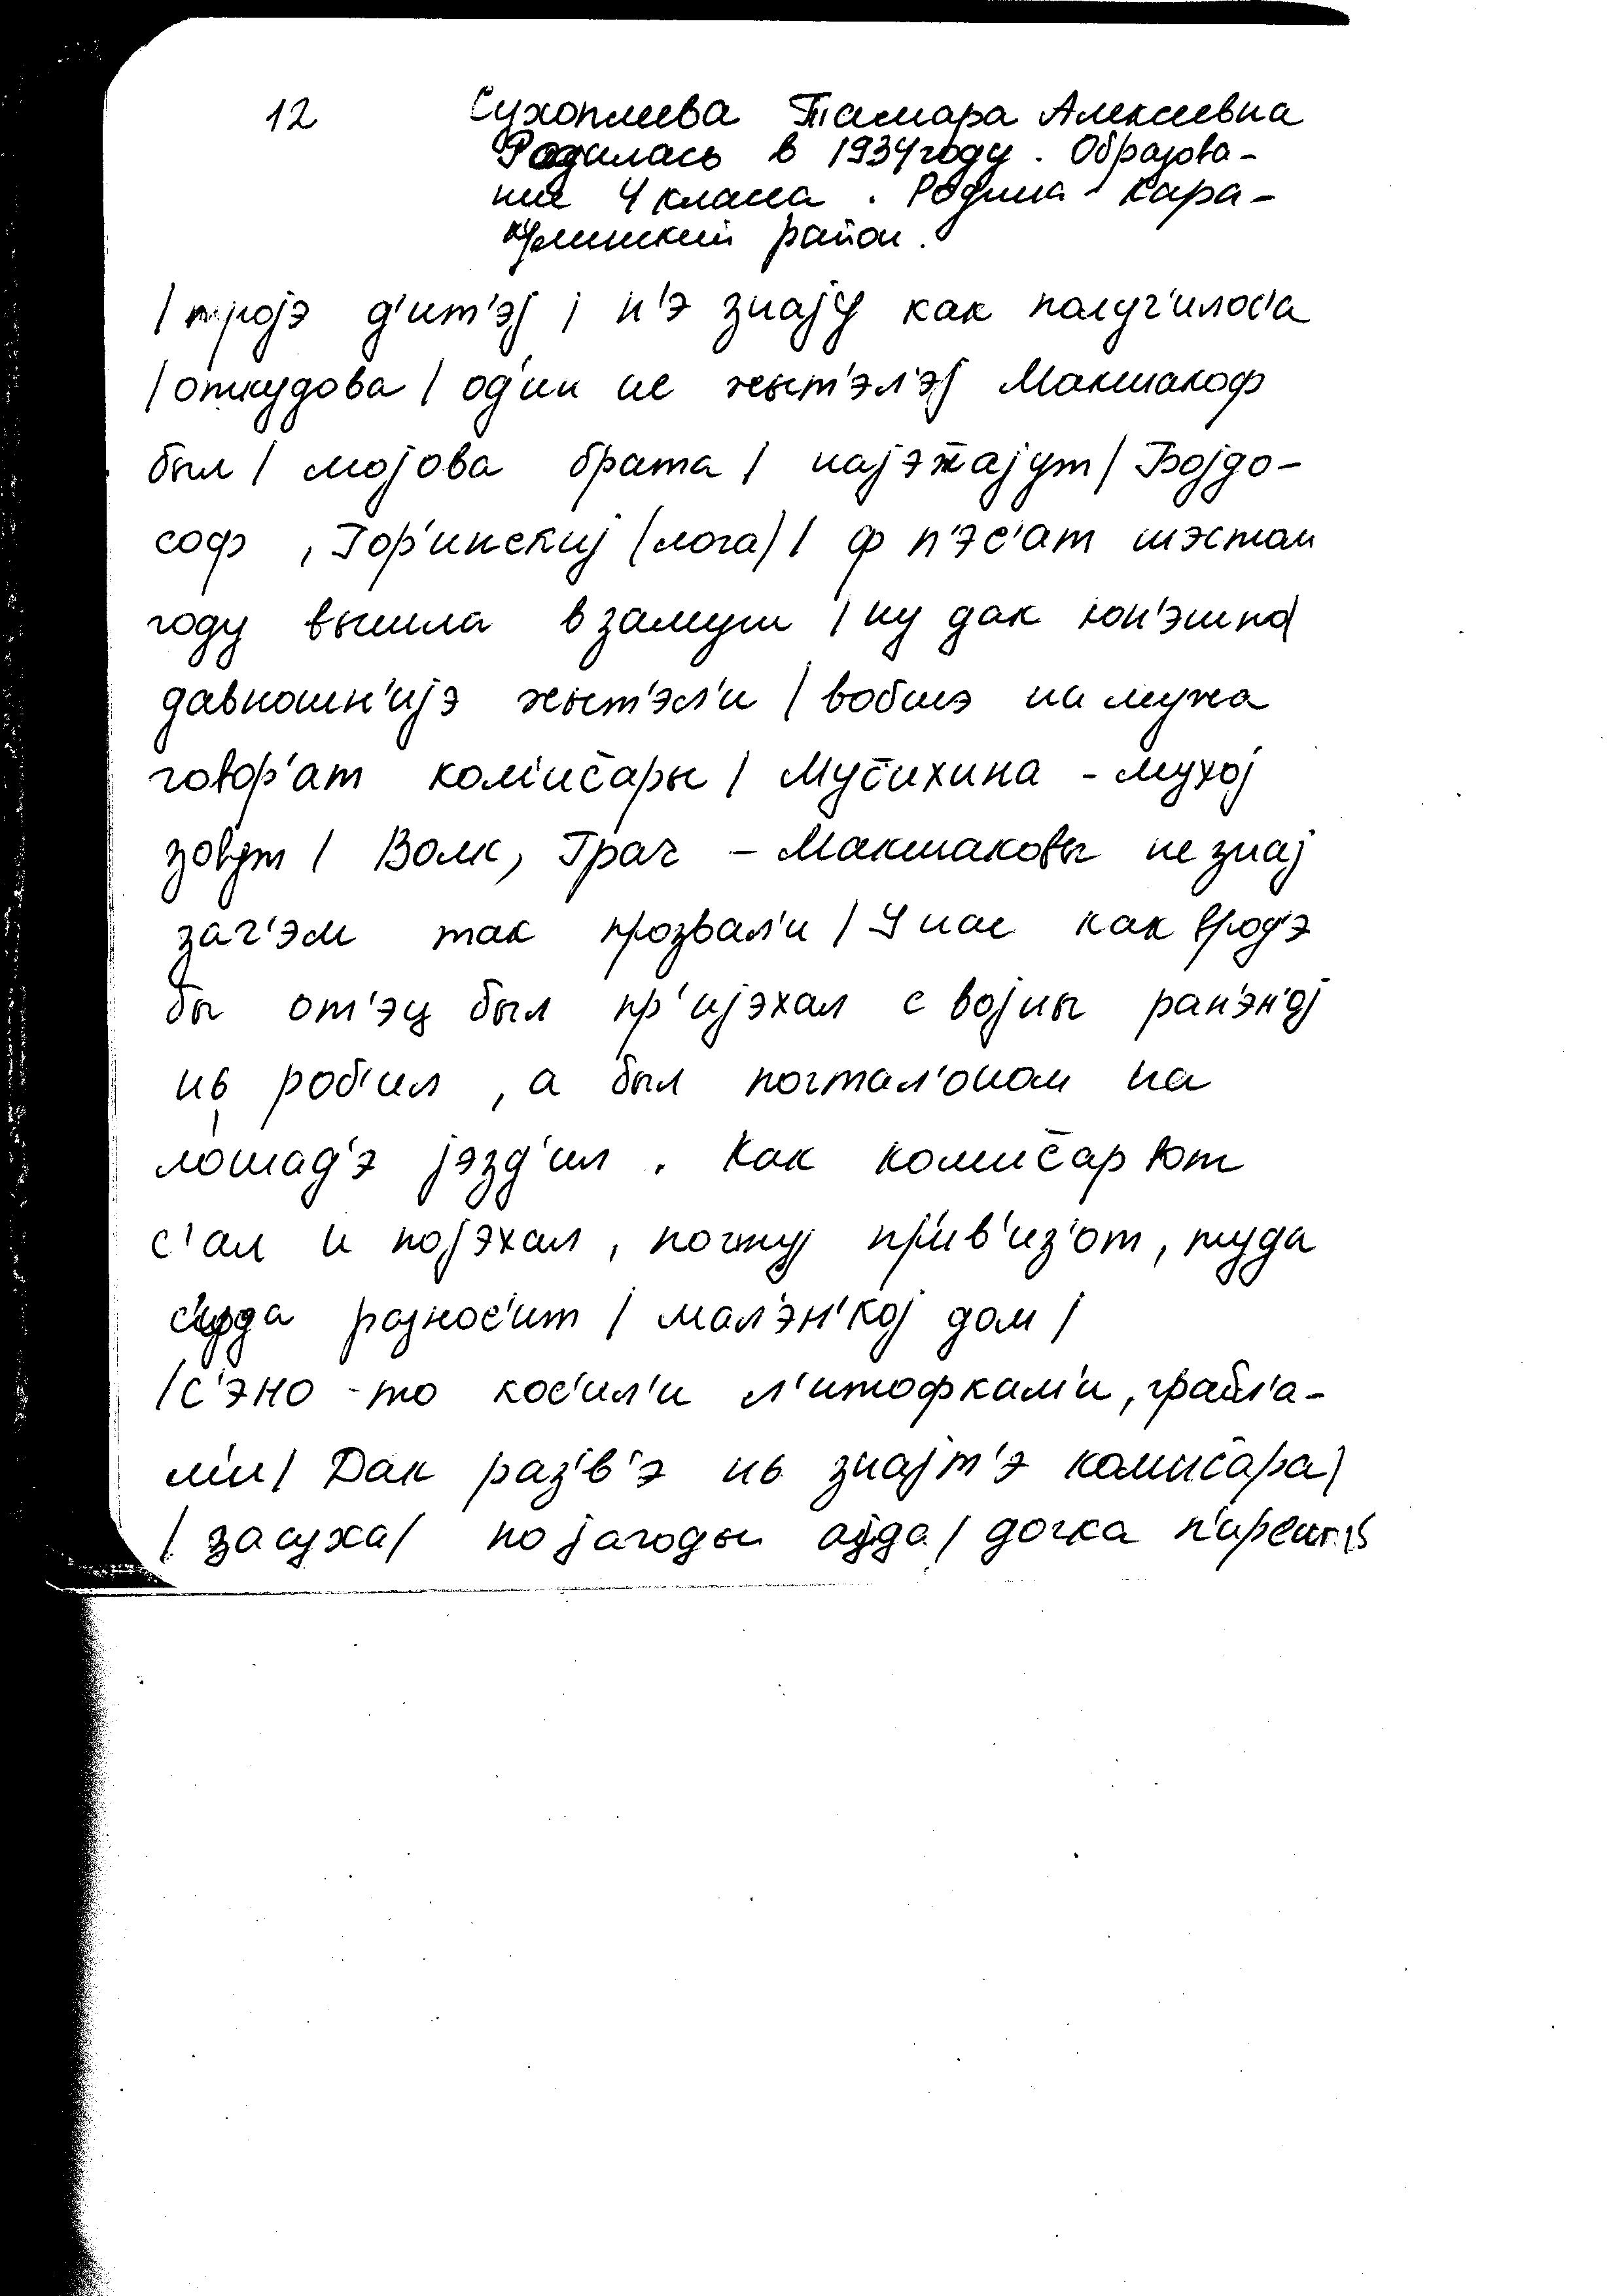 12 Сухоплюева Тамара Алексеевна
Родилась в 1934 году. Образова-
ние 4 класса. Родина Кара-
кулинский район.
/ тројэ д'ит'эј / н'э знају как получ'илос'а
/ откудова / од'ин не жыт'эл'эј Макшакоф
был / мојова брата / најэжајут / Војдо-
соф, Гор'инскиј (лога) / ф п'эс'ат шэстом
году вышла взамуш / ну дак кон'эшно /
давношн'ијэ жыт'эл'и / вобшэ на мужа
говор'ат ком'исары / Мусихина - мухој
зовут / Волк, Грач - Макшаковы не знај
зач'эм так прозвал'и / У нас как врод'э
бы от'эц был пр'ијэхал с војны ран'эн'ој
нь роб'ил, а был почтал'оном на
лошад'э јэзд'ил. Как комисар вот
с'ал и појэхал, почту пр'ив'из'от, туда
с'уда разнос'ит / мал'эн'кој дом /
/ с'эно-то кос'ил'и л'итофкам'и, грабл'а-
м'и / Дак раз'в'э нь знајт'э комисара /
/ засуха / по јагоды ајда / дочка